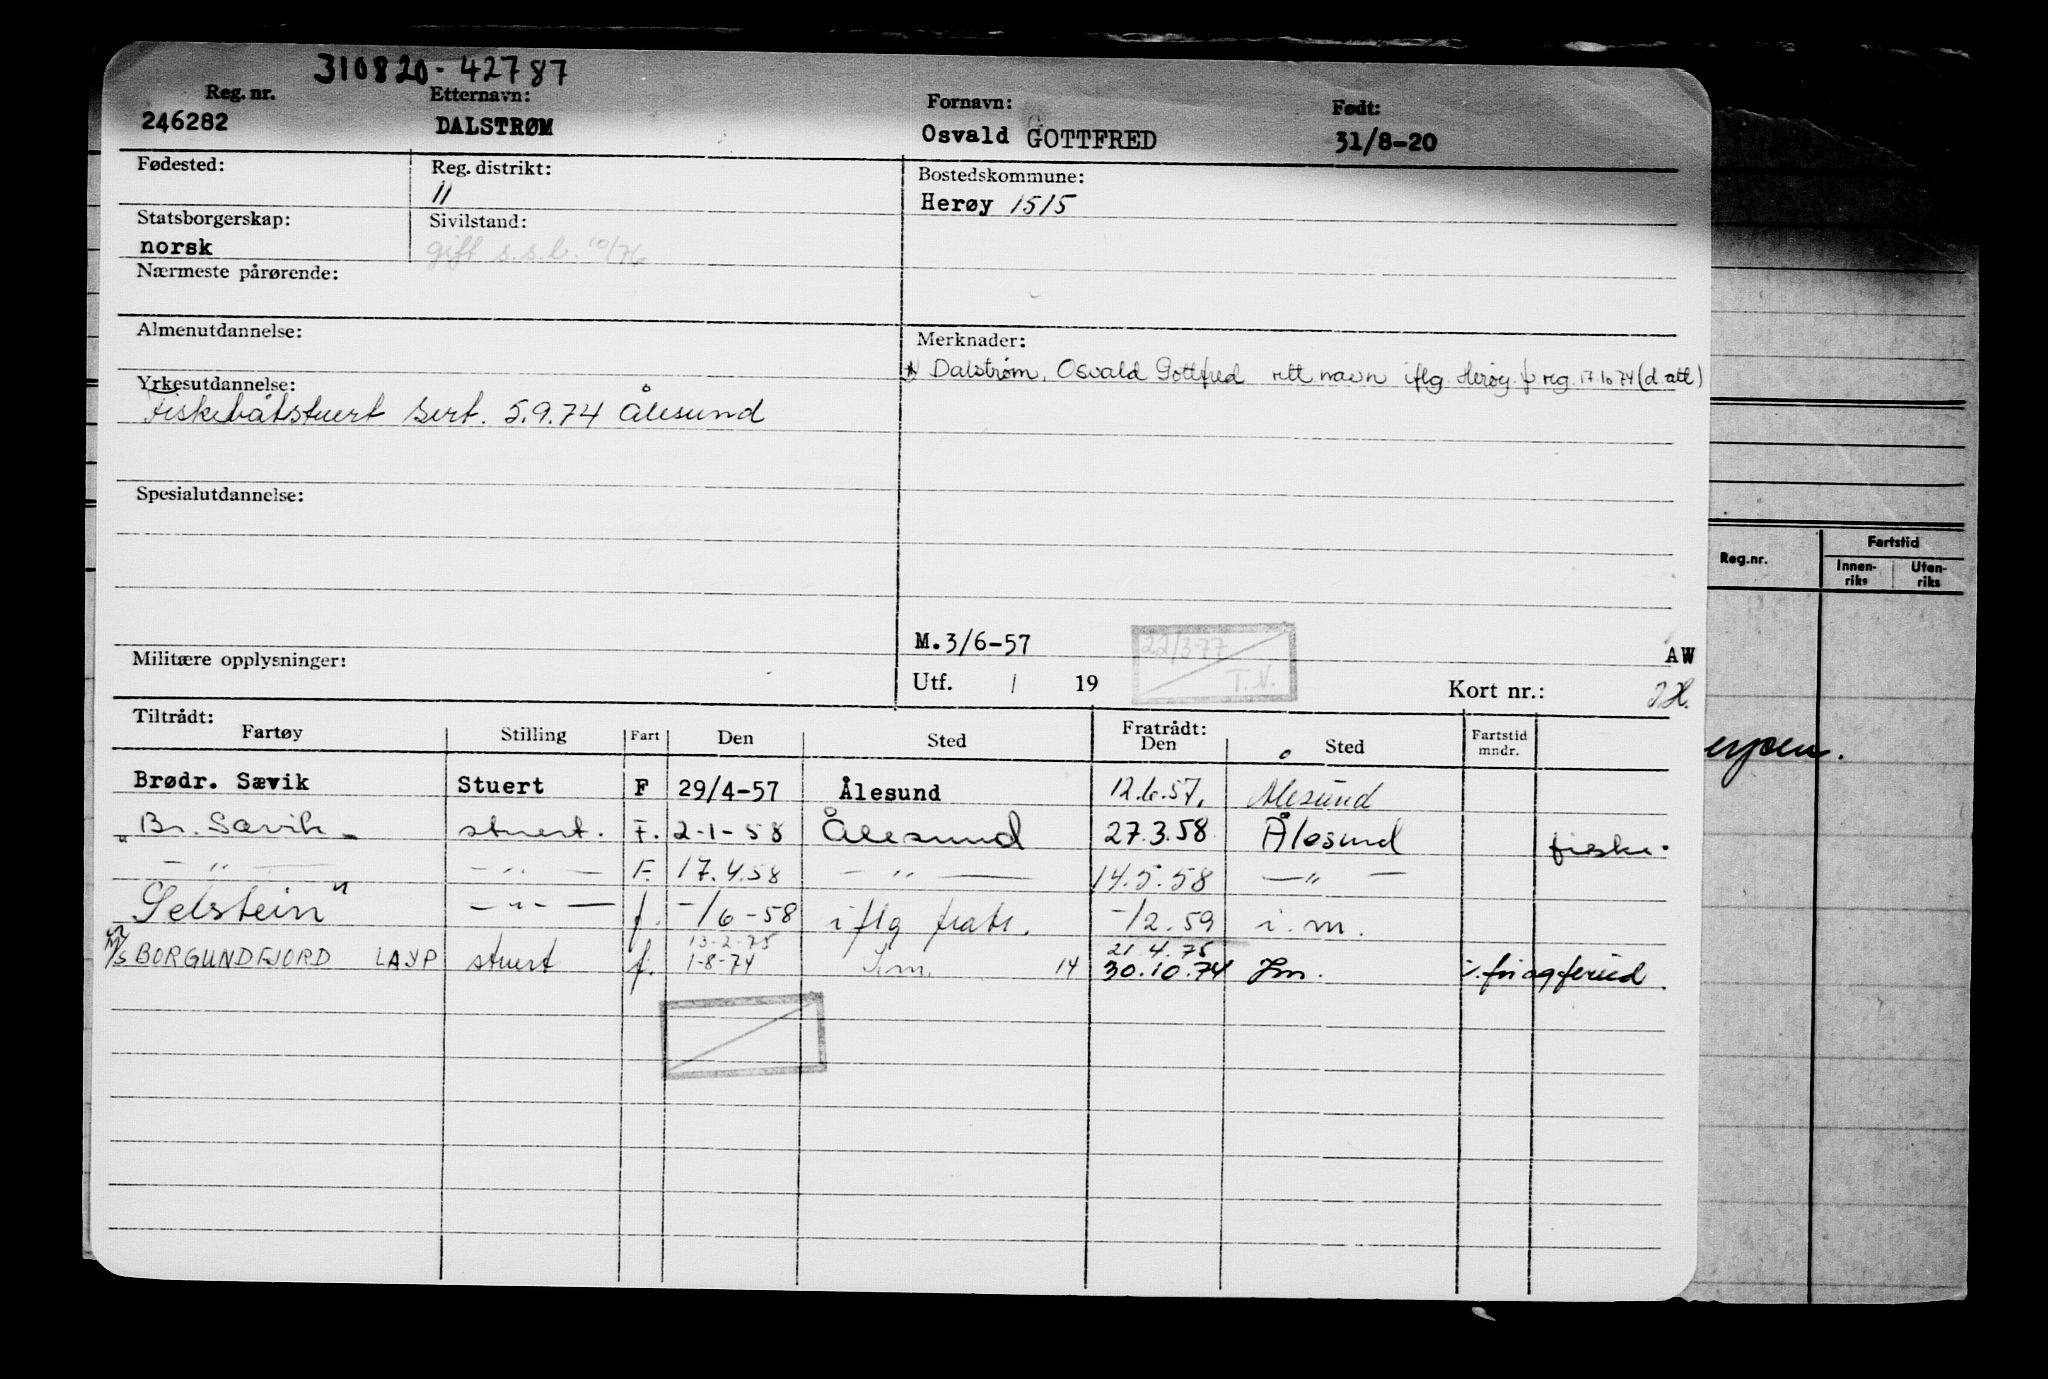 310820-42787
Reg. nr. Etternavn: Fornavn: Født:
246282 DALSTRØM Osvald GOTTFRED 31/8-20
Fødested: Reg. distrikt: Bostedskommune:
11 Herøy 1515
Statsborgerskap: Sivilstand:
norsk gift s.s.b. 10/76
Nærmeste pårørende:
Almenutdannelse: Merknader:
Dalstrøm, Osvald Gottfred rett navn iflg. Herøy f reg. 17.10 74 (d. att)
Yrkesutdannelse:
Fiskebåtstuert sert. 5.9.74 Ålesund
Spesialutdannelse:
M.3/6-57 22/3-77 AW
Militære opplysninger: T.N.
Utf. / 19 Kort nr.:
Tiltrådt: Fratrådt:
Fartøy Stilling Fart Den Sted Den Sted Fartstid mndr.
Brødr. Sævik Stuert F 29/4-57 Ålesund 12.6.57. Ålesund
"Br. Sævik" stuert. F. 2-1-58 Ålesund 27.3.58 Ålesund fiske.
— " — — " — F. 17.4.58 — " — 14.5.58 — " —
Selstein" — " — f. -/6-58 iflg fratr. -/2.59 i.m.
13-2-75 21.4.75
M/S BORGUNDFJORD LAYP stuert f. 1-8-74 I.m. 14 30.10.74 Im. v. fri og feried.
Reg.nr. Fartstid
Innenriks Utenriks
erpen.